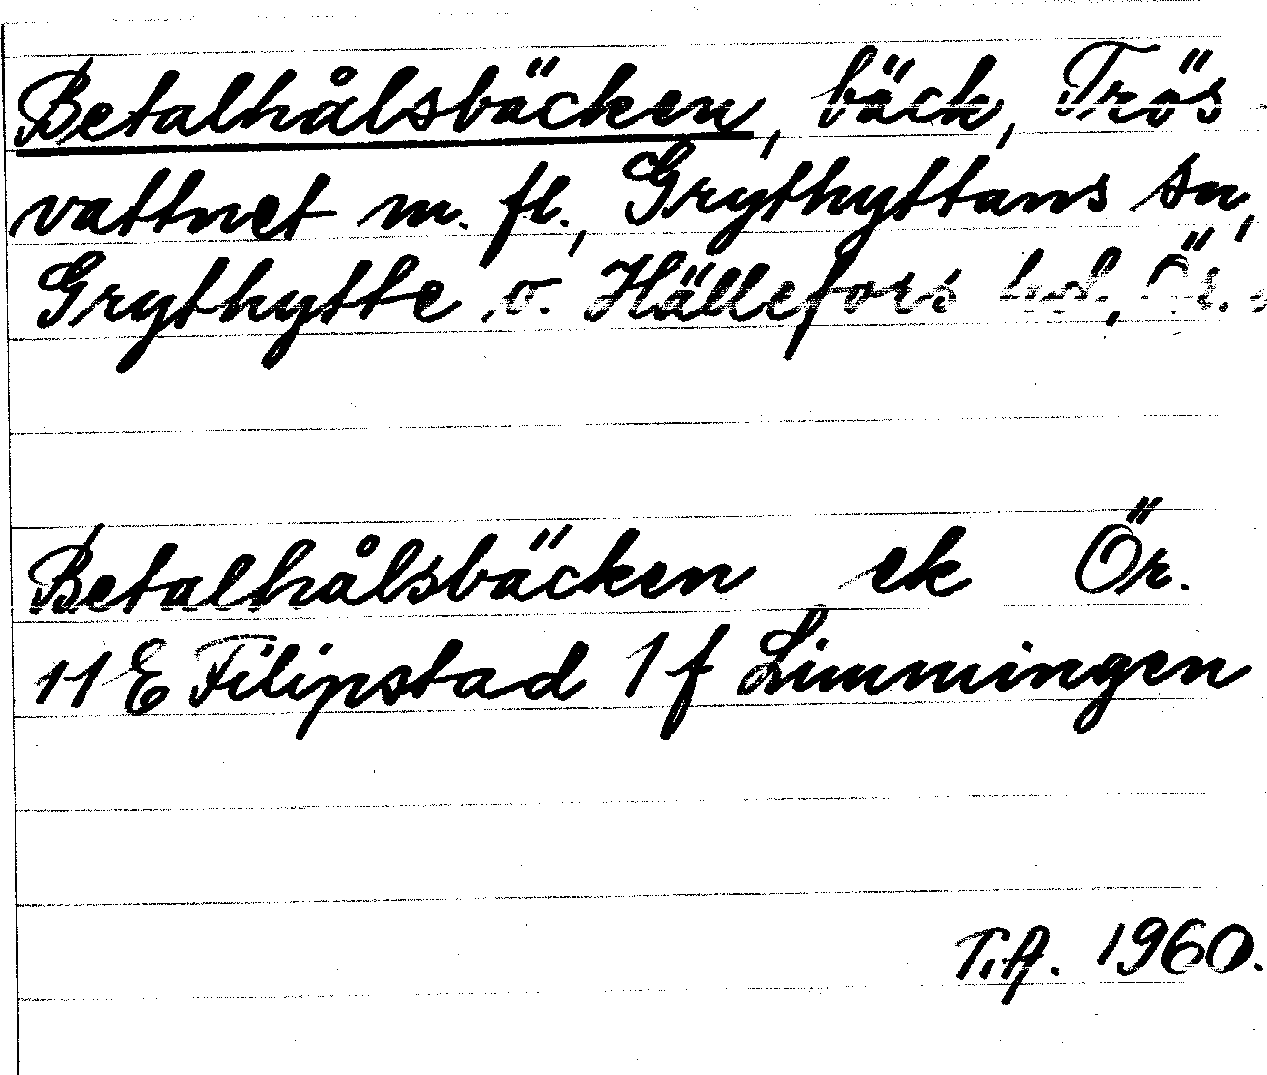 Betalhålsbäcken, bäck, Trös
vattnet m. fl., Grythyttans sn,
Grythytte o. Hällefors hd, Ör.
Betalhålsbäcken ek Ör.
11 E Filipstad 1 f Limmingen
1960.